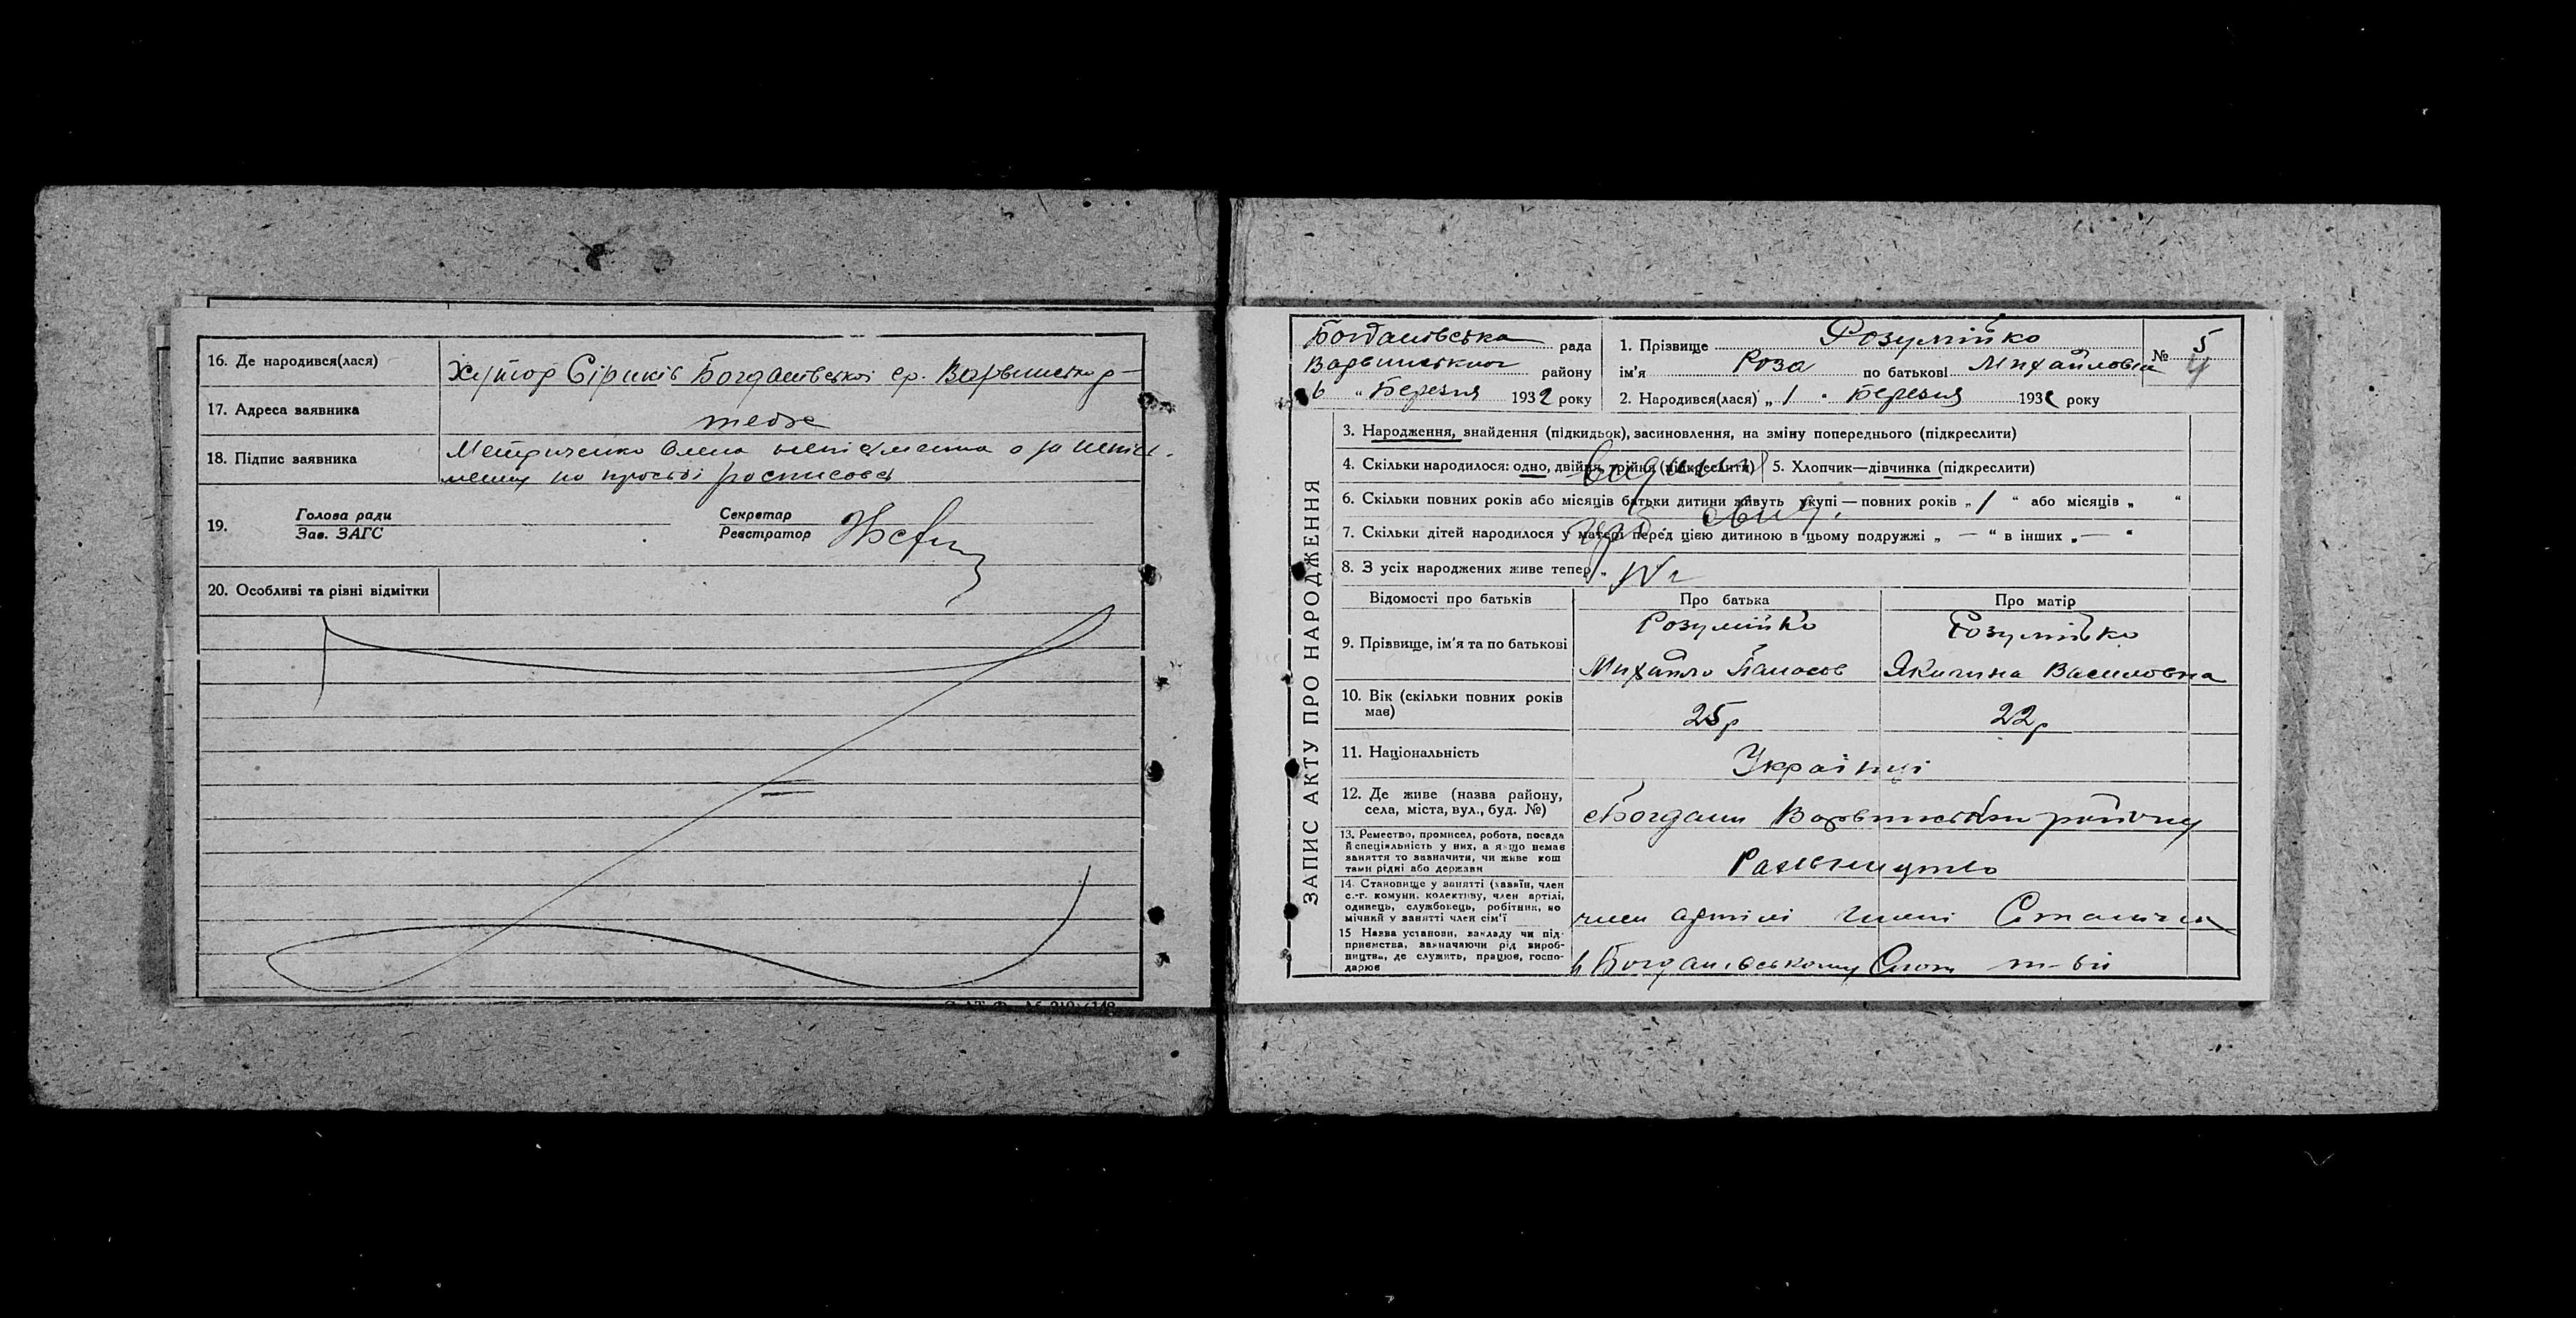 16. Де народився(лася)
Хутор Сіриків Богданівської ср. Варвинськ р-
17. Адреса заявника
теж
18. Підпис заявника
Олена неписьменна а за непись-
менну по просьбі росписовсь
19. Голова ради
Зав. ЗАГС
Секретар
Реєстратор
20. Особливі та різні відмітки
ЗАПИС АКТУ ПРО НАРОДЖЕННЯ
Богданівська рада
Варвинського району
6 " Березня 1932 року
1. Прізвище Розумійко
ім'я Роза по батькові Михайловна
№ 5
2. Народився(лася) „ 1 " Березня 1932 року
3. Народження, знайдення (підкидьок), засиновлення, на зміну попереднього (підкреслити)
4. Скільки народилося: одно, двійня, трійня (підкреслити)
5. Хлопчик—дівчинка (підкреслити)
6. Скільки повних років або місяців батьки дитини живуть укупі — повних років „ 1 “ або місяців „ “
7. Скільки дітей народилося у матері перед цією дитиною в цьому подружжі „ — “ в інших „ — “
8. З усіх народжених живе тепер „
Відомості про батьків
Про батька
Про матір
9. Прізвище, ім'я та по батькові
Розумійко
Михайло Панасов
Розумійко
Якилина Василовна
10. Вік (скільки повних років має)
25р
22р
11. Національність
Українці
12. Де живе (назва району, села, міста, вул., буд. №)
с Богдани Варвинського району
13. Ремество, промисел, робота, посада й спеціяльність у них, а якщо немає заняття то зазначити, чи живе коштами рідні або держави
14. Становище у занятті (хазяїн, член с.-г. комуни, колективу, член артілі, одинець, службовець, робітник, помічний у занятті член сім'ї
член артілі імені Сталіна
15 Назва установи, закладу чи підприємства, зазначаючи рід виробництва, де служить, працює, господарює
в Богданівському т-ві